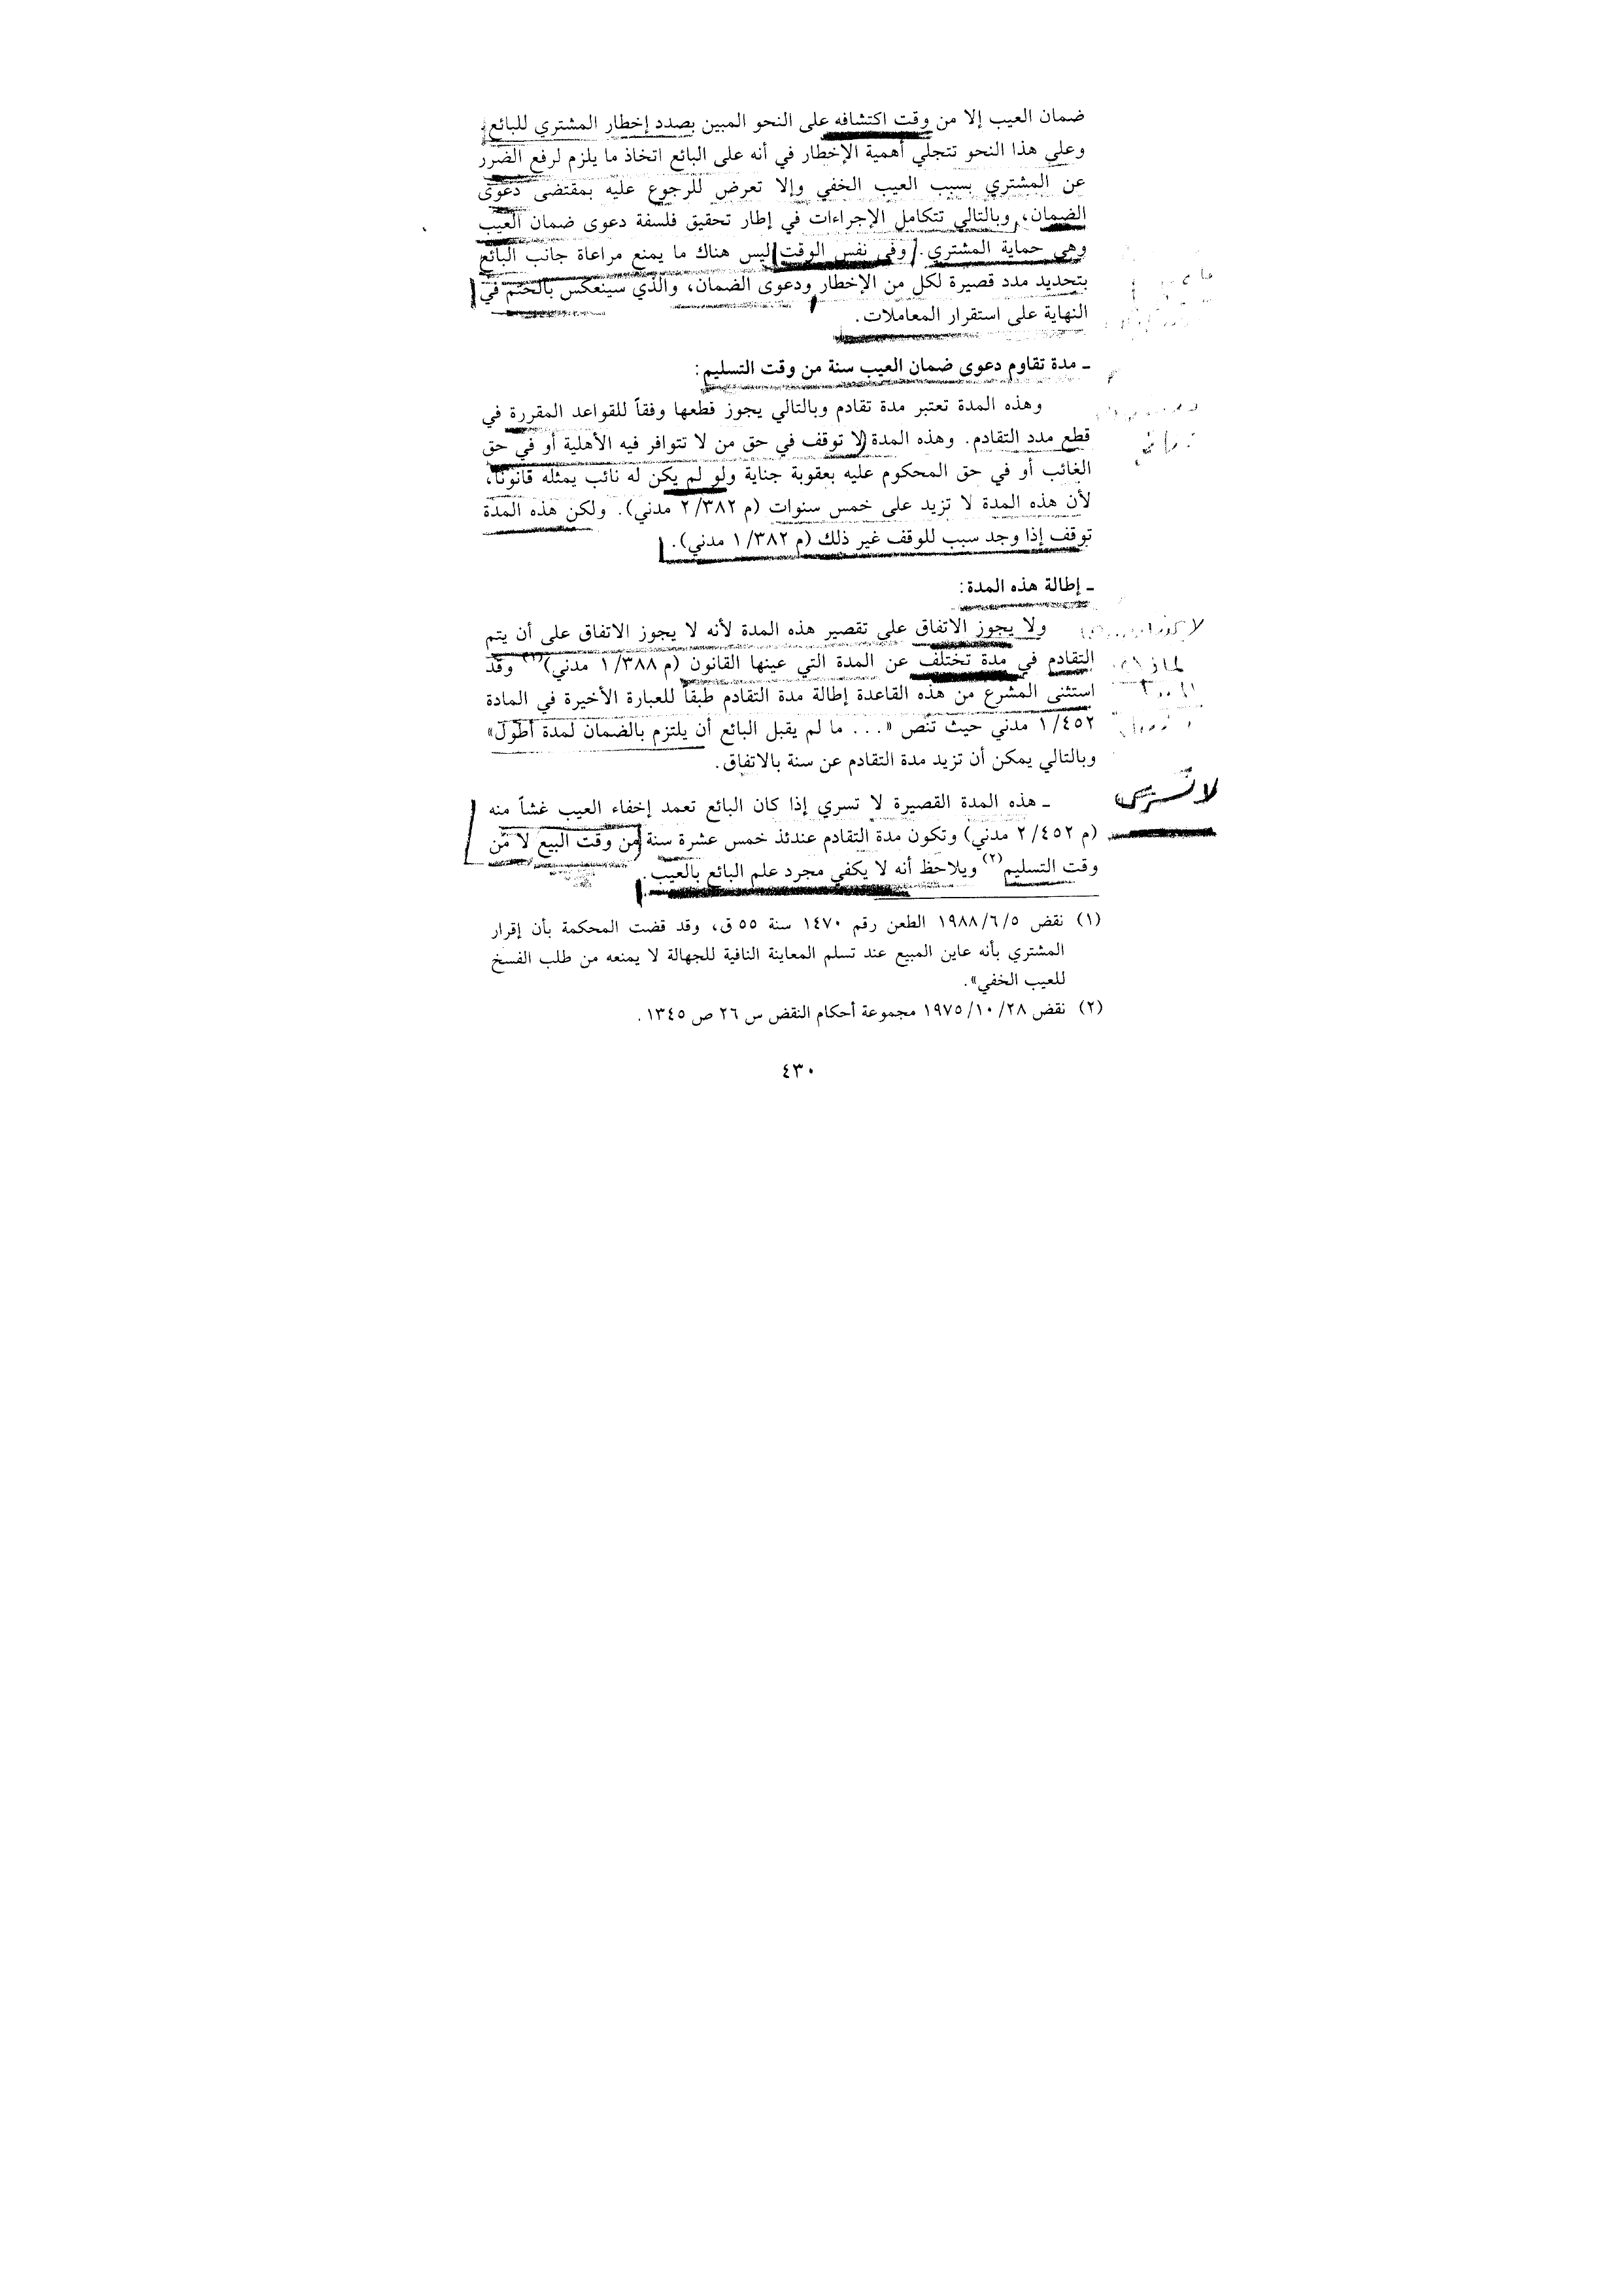 ضمان العيب إلا من وقت اكتشافه على النحو المبين بصدد إخطار المشتري للبائع.
وعلى هذا النحو تتجلي أهمية الإخطار في أنه على البائع اتخاذ ما يلزم لرفع الضرر
عن المشتري بسبب العيب الخفي وإلا تعرض للرجوع عليه بمقتضى دعوى
الضمان، وبالتالي تتكامل الإجراءات في إطار تحقيق فلسفة دعوى ضمان العيب
وهي حماية المشتري. وفي نفس الوقت ليس هناك ما يمنع مراعاة جانب البائع
بتحديد مدد قصيرة لكل من الإخطار ودعوى الضمان، والذي سينعكس بالحتم في
النهاية على استقرار المعاملات.
ـ مدة تقاوم دعوى ضمان العيب سنة من وقت التسليم:
وهذه المدة تعتبر مدة تقادم وبالتالي يجوز قطعها وفقاً للقواعد المقررة في
قطع مدد التقادم. وهذه المدة لا توقف في حق من لا تتوافر فيه الأهلية أو في حق
الغائب أو في حق المحكوم عليه بعقوبة جناية ولو لم يكن له نائب يمثله قانوناً،
لأن هذه المدة لا تزيد على خمس سنوات (م ٢/٣٨٢ مدني). ولكن هذه المدة
توقف إذا وجد سبب للوقف غير ذلك (م ١/٣٨٢ مدني).
ـ إطالة هذه المدة:
ولا يجوز الاتفاق على تقصير هذه المدة لأنه لا يجوز الاتفاق على أن يتم
التقادم في مدة تختلف عن المدة التي عينها القانون (م ١/٣٨٨ مدني)(١) وقد
استثنى المشرع من هذه القاعدة إطالة مدة التقادم طبقاً للعبارة الأخيرة في المادة
١/٤٥٢ مدني حيث تنص «... ما لم يقبل البائع أن يلتزم بالضمان لمدة أطول»
وبالتالي يمكن أن تزيد مدة التقادم عن سنة بالاتفاق.
لا تسري
ـ هذه المدة القصيرة لا تسري إذا كان البائع تعمد إخفاء العيب غشاً منه
(م ٢/٤٥٢ مدني) وتكون مدة التقادم عندئذ خمس عشرة سنة من وقت البيع لا من
وقت التسليم(٢) ويلاحظ أنه لا يكفي مجرد علم البائع بالعيب.
(١) نقض ١٩٨٨/٦/٥ الطعن رقم ١٤٧٠ سنة ٥٥ ق، وقد قضت المحكمة بأن إقرار
المشتري بأنه عاين المبيع عند تسلم المعاينة النافية للجهالة لا يمنعه من طلب الفسخ
للعيب الخفي».
(٢) نقض ١٩٧٥/١٠/٢٨ مجموعة أحكام النقض س ٢٦ ص ١٣٤٥.
٤٣٠